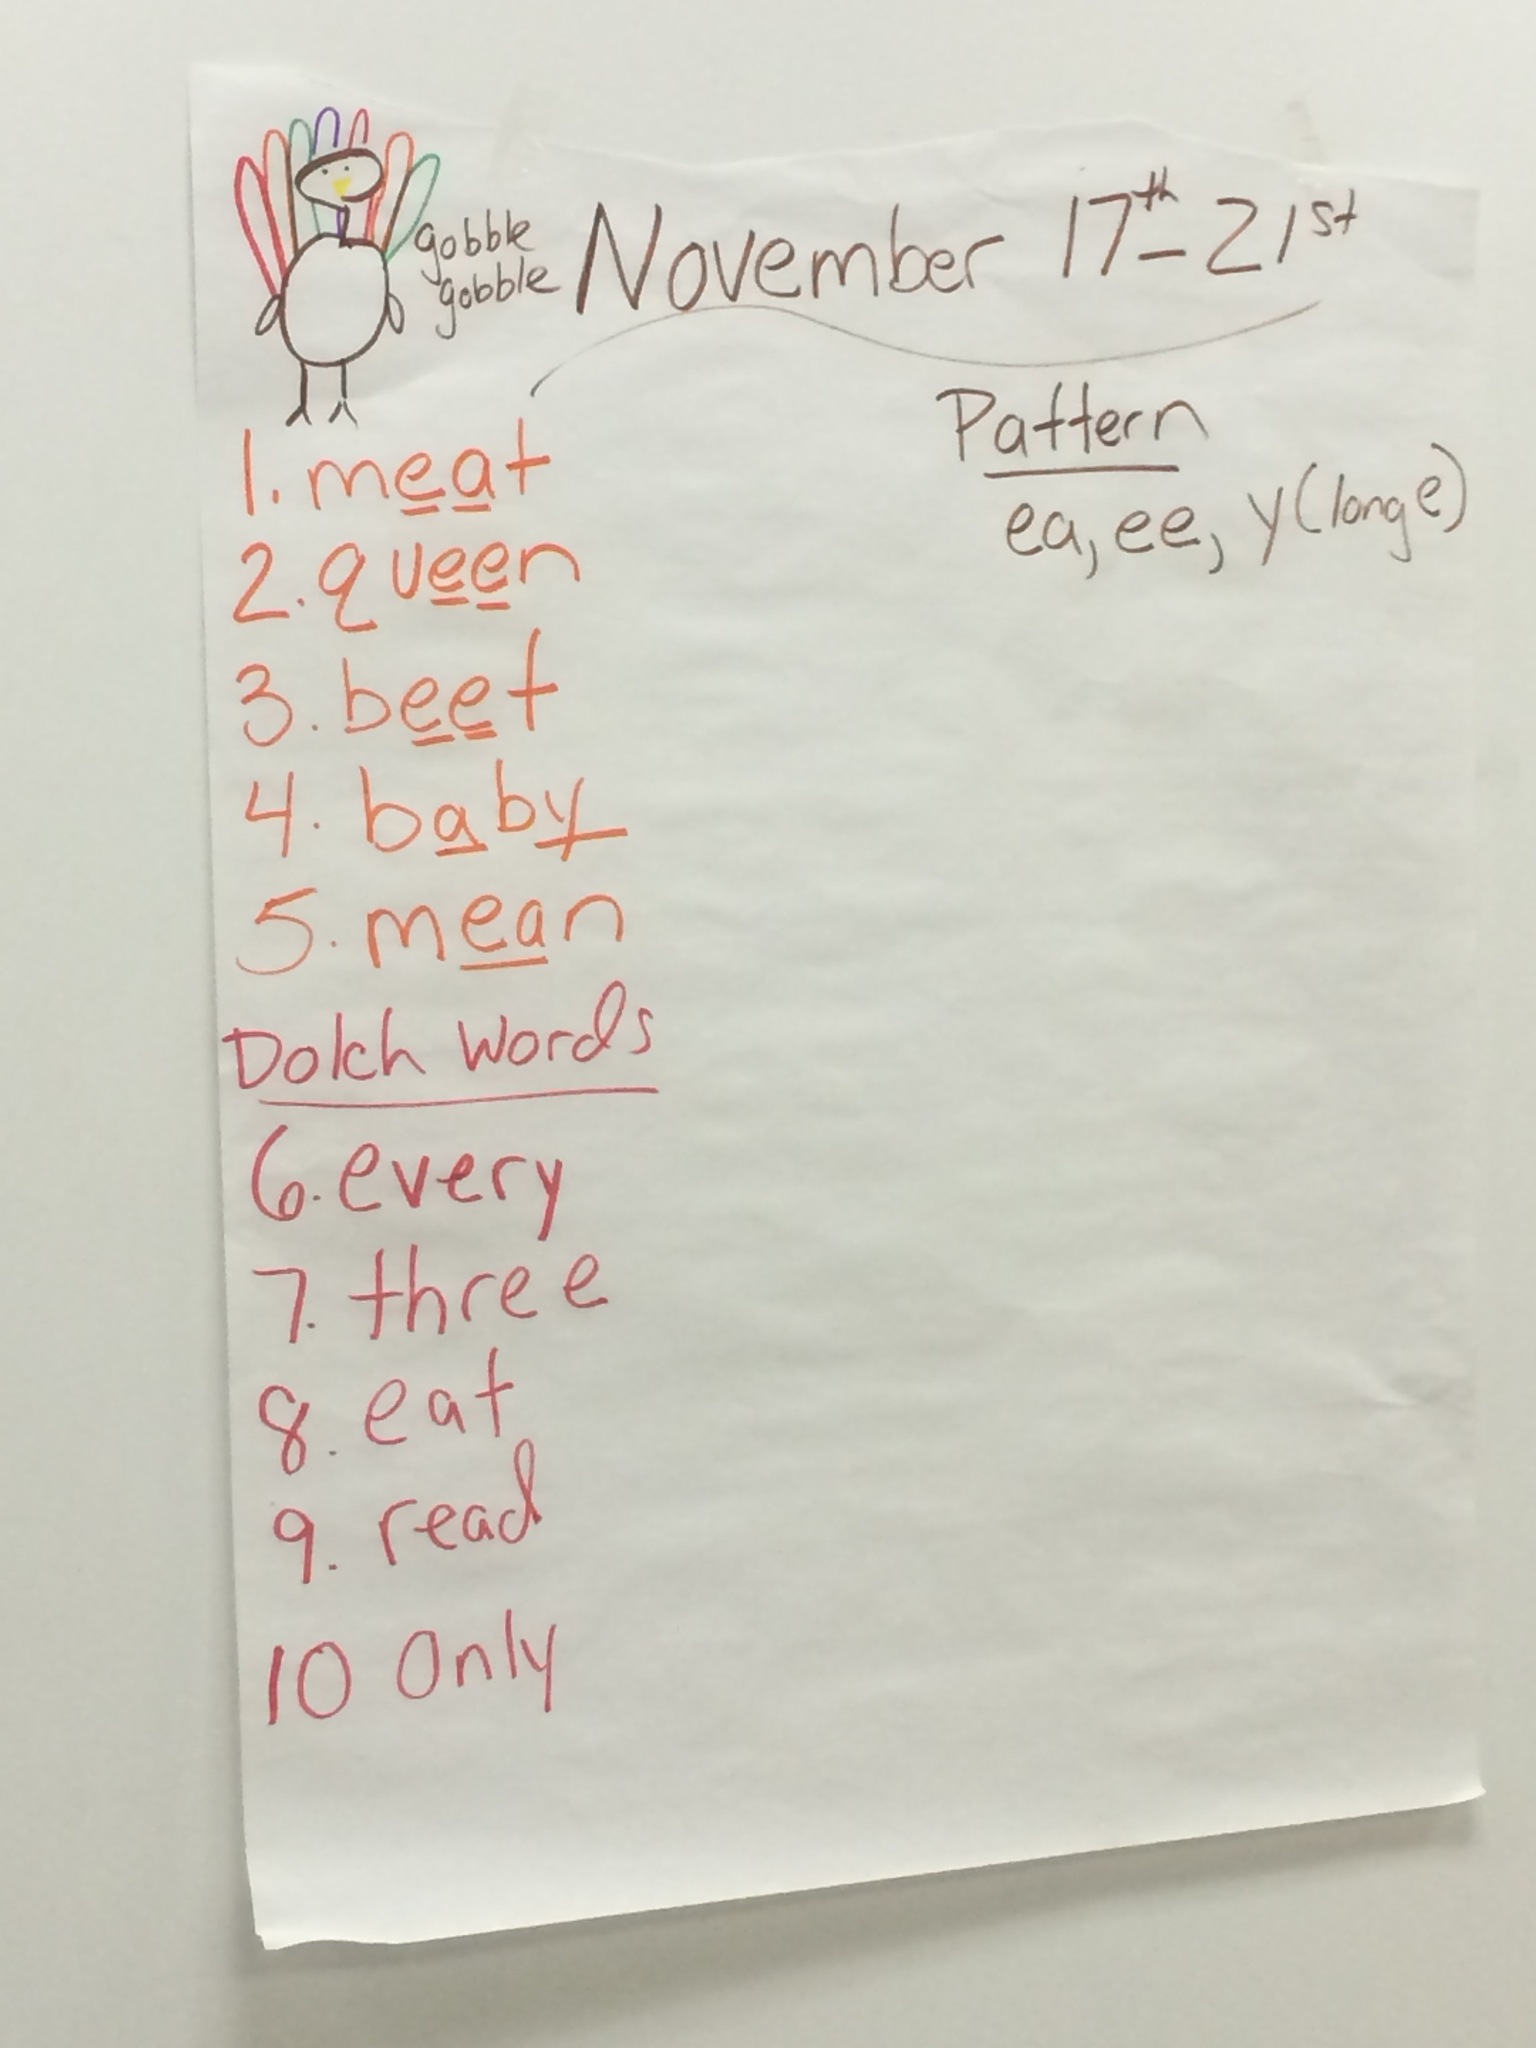 gobble
gobble
November 17th - 21st
Pattern
ea, ee, y (long e)
1. meat
2. queen
3. beet
4. baby
5. mean
Dolch Words
6. every
7. three
8. eat
9. read
10 Only